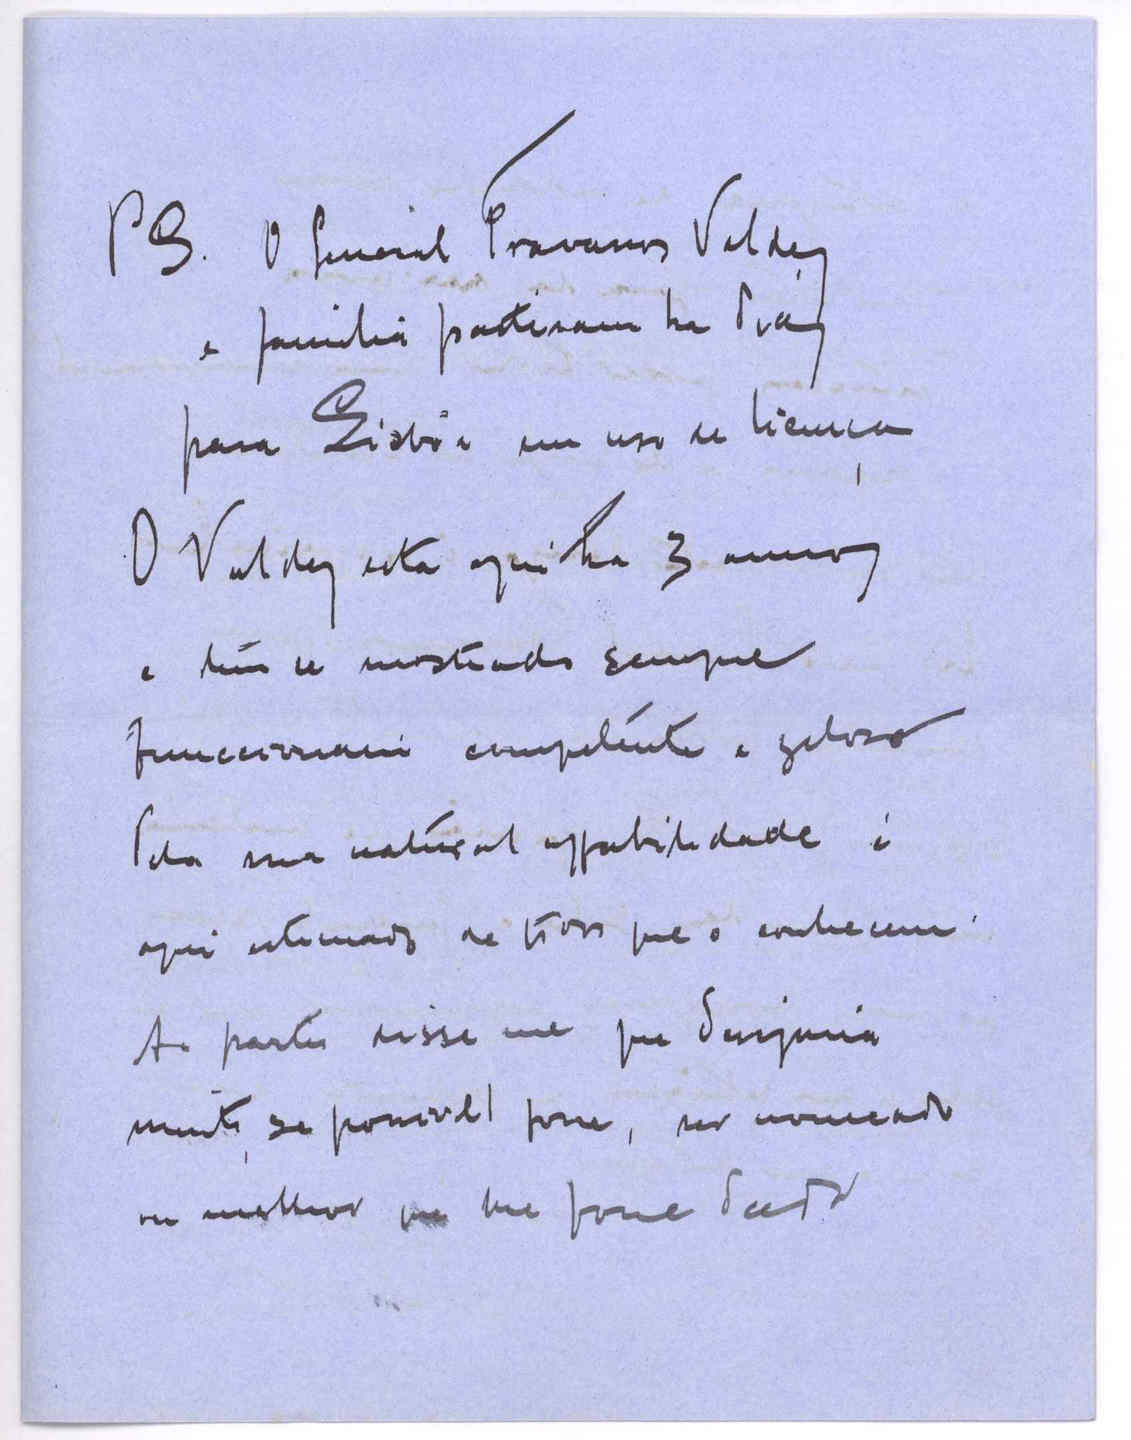 PS. O General Travassos Valdez
e familia partiram ha dias
para Lisboa em uso de licença
O Valdez esta aqui ha 3 annos
e tem se mostrado sempre
funccionario competente e zeloso
Pela sua natural affabilidade é
aqui estimado de todos que o conhecem.
Ao partir disse me que desejaria
muito, se possivel fosse, ser nomeado
ou melhor que lhe fosse dado